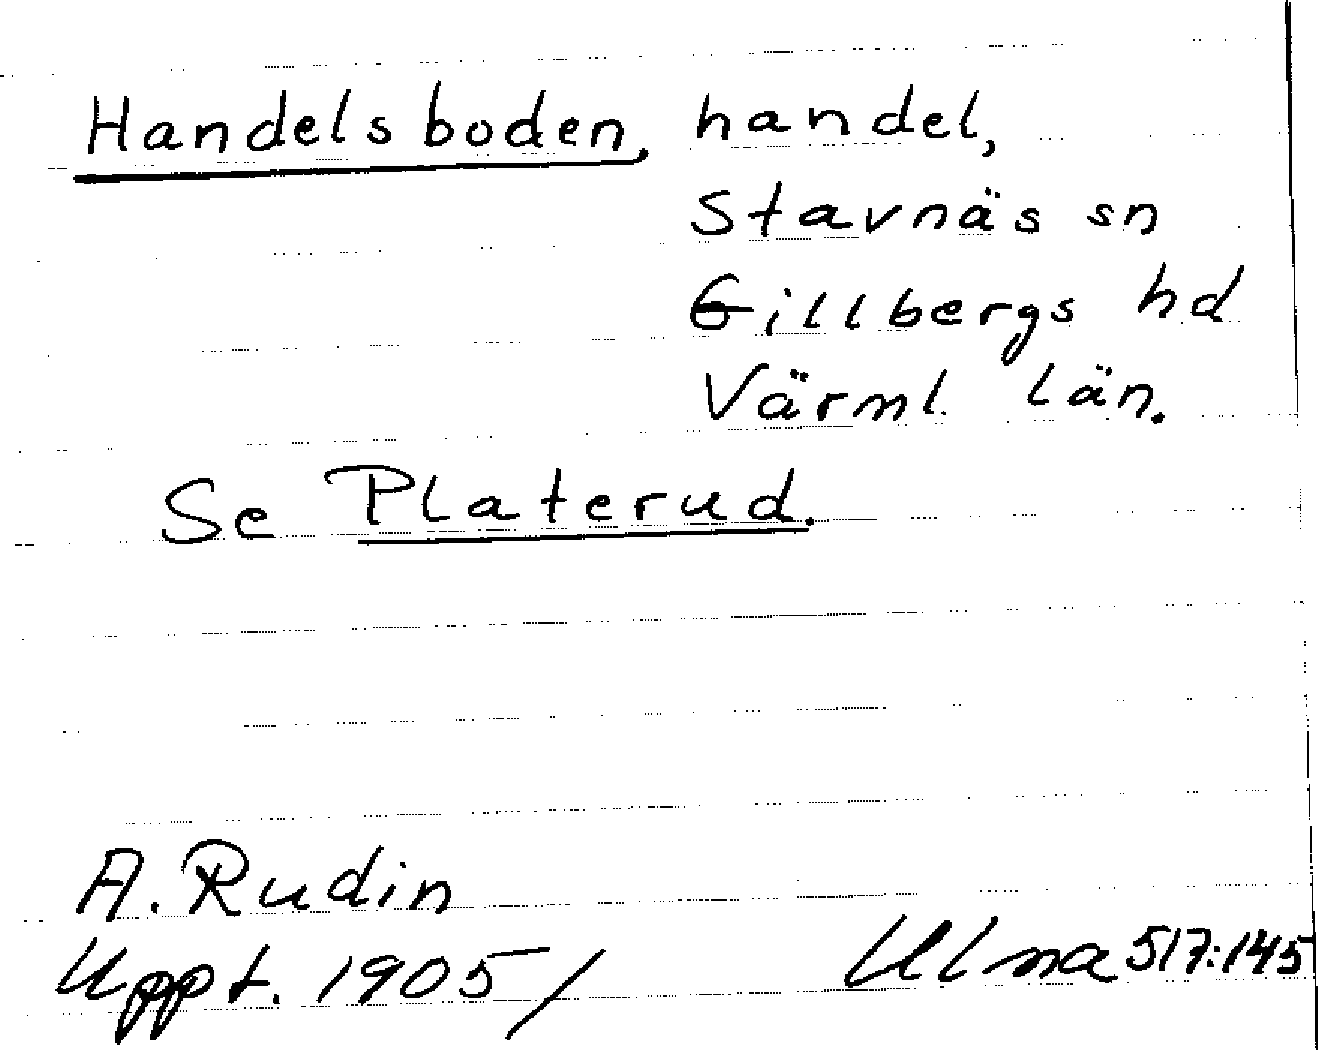 Handelsboden, handel,
Stavnäs sn
Gillbergs hd
Värml. län.
Se Platerud.
A. Rudin
Uppt. 1905/ Ulma 517:145